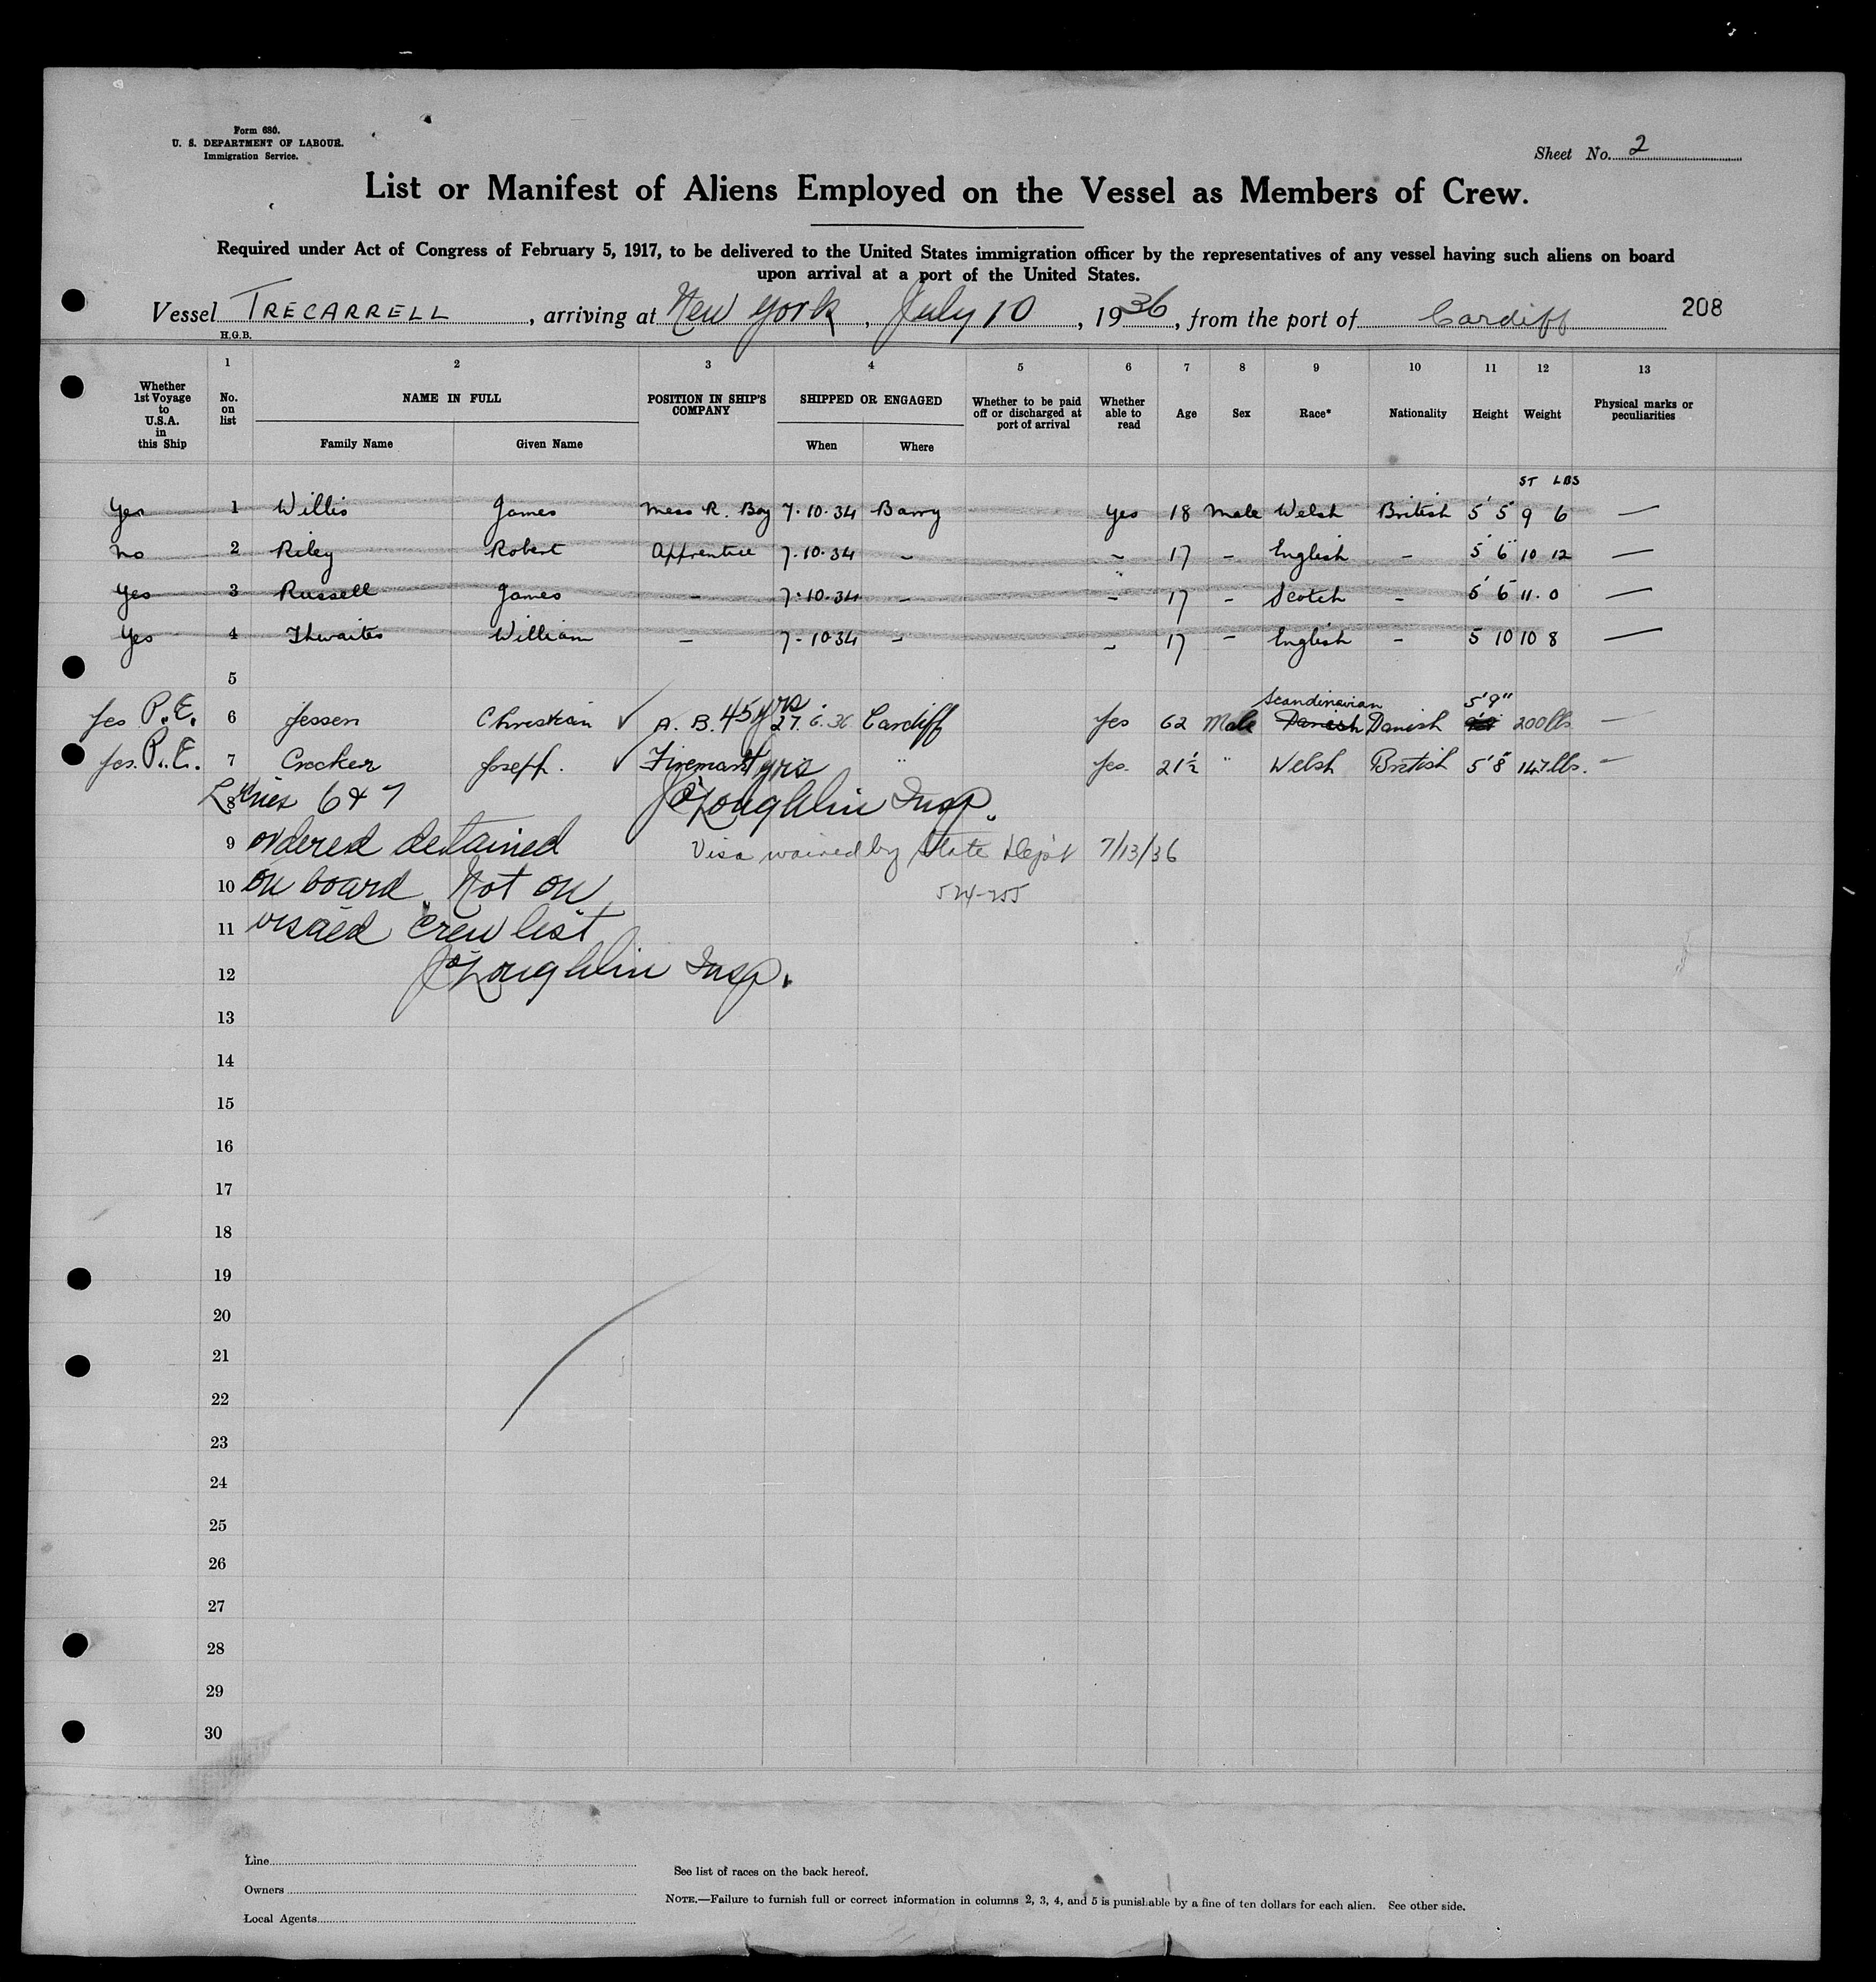 Form 680.
U. S. DEPARTMENT OF LABOUR.
Immigration Service.
Sheet No. 2
List or Manifest of Aliens Employed on the Vessel as Members of Crew.
Required under Act of Congress of February 5, 1917, to be delivered to the United States immigration officer by the representatives of any vessel having such aliens on board
upon arrival at a port of the United States.
Vessel TRECARRELL, arriving at New York, July 10, 1936, from the port of Cardiff 208
H.G.B.
1 2 3 4 5 6 7 8 9 10 11 12 13
Whether 1st Voyage to U.S.A. in this Ship No. on list NAME IN FULL POSITION IN SHIP'S COMPANY SHIPPED OR ENGAGED Whether to be paid off or discharged at port of arrival Whether able to read Age Sex Race* Nationality Height Weight Physical marks or peculiarities
Family Name Given Name When Where
ST LBS
Yes 1 Willis James Mess R. Boy 7.10.34 Barry Yes 18 Male Welsh British 5' 5" 9 6 —
No 2 Riley Robert Apprentice 7.10.34 - - 17 - English - 5' 6" 10 12 —
Yes 3 Russell James - 7.10.34 - - 17 - Scotch - 5' 6" 11.0 —
Yes 4 Thwaites William - 7-10 34 - - 17 - English - 5 10 10 8 —
5
Scandinavian 5'9"
Yes P.E. 6 Jessen Christian ✓ A. B. 45 yrs 27.6.36 Cardiff Yes 62 Male Danish Danish 200 lbs —
Yes. P.E. 7 Crocker Joseph. ✓ Fireman yrs " Yes. 21½ " Welsh British 5'8" 147 lbs. —
8 Lines 6 & 7 J O'Loughlin Insp.
9 ordered detained Visa waived by State Dep't 7/13/36
10 on board. Not on 524-255
11 visaed crew list
12 J O'Loughlin Insp.
13
14
15
16
17
18
19
20
21
22
23
24
25
26
27
28
29
30
Line
Owners
Local Agents
See list of races on the back hereof.
NOTE.—Failure to furnish full or correct information in columns 2, 3, 4, and 5 is punishable by a fine of ten dollars for each alien. See other side.